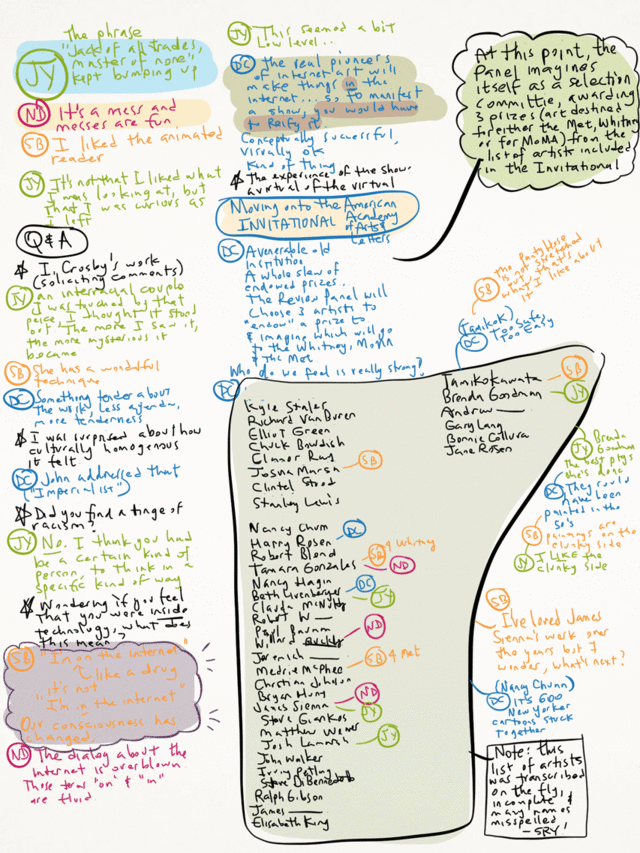 The phrase
"Jack of all trades,
JY
master of none"
kept bumping up
ND It's a mess and
messes are fun
SB I liked the animated
reader
JY It's not that I liked what
I was looking at, but
that I was curious as
I left
Q&A
Crosby's work
(soliciting comments)
JY an interracial couple
I was touched by that
piece. I thought it stood
out The more I saw it,
the more mysterious it
became
SB She has a wonderful
technique
DC Something tender about
the work, less agenda,
more tenderness
I was surprised about how
culturally homogenous
it felt
DC John addressed that
("Imperialist")
Did you find a tinge of
racism?
JY No. I think you had
be a certain kind of
person, to think in a
specific kind of way
Wondering if you feel
that you were inside
technology, what does
this mean?
SB "I'm on the internet"
like a drug
it's not
"I'm in the internet"
Our consciousness has
changed.
ND The dialog about the
Internet is overblown
Those terms "on" & "in"
are fluid
JY This seemed a bit
Low level..
DC the real pioneers
of internet art will
make things in the
internet... so, to manifest
a show, you would have
to Reify it.
Conceptually successful,
Visually ok
Kind of thing
The experience of the show
a virtual of the virtual
Moving onto the American
Academy
INVITATIONAL of Arts &
Letters
DC A venerable old
institution
A whole slew of
endowed prizes.
The Review Panel will
Choose 3 artists to
"endow" a prize to
& imagine which will go
to the Whitney, MoMA
& The Met
Who do we feel is really strong?
DC
Kyle Staler
Richard Van Buren
Elliot Green
Chuck Bowdish
Elanor Ray
Joshua Marsh SB
Clintel Steed
Stanley Lewis
Nancy Chum DC
Harry Rosen
Robert Blond SB 4 Whitny
Tamara Gonzales ND
Nancy Hagin DC
Beth Livenberger JY
Claudia McNulty
Robert W
Paul Baumn
Willard ND
Jeremiah
Medrie McPhee SB 4 Met
Christian Johnson
Bryan Hunt ND
James Sienna JY
Steve Giankos
Matthew Weiner
Josh Lamarsh JY
John Walker
Irving Petlin
Steve DiBennedetto
Ralph Gibson
James
Elisabeth King
Tamiko Kawata SB
Brenda Goodman JY
Andrew
Gary Lang
Bonnie Collura
Jane Rosen
At this point, the
Panel imagines
itself as a selection
committie, awarding
3 prizes (art destined
for either the Met, Whitney
or for MoMA) from the
list of artists included
in the Invitational
SB the
is not stretched
but that's
what I like about
it
(Tamikok)
DC Too safe,
Too easy
JY Brenda
Goodman
the best ptgs
she's done
DC They could
have been
painted in the
50's
SB paintings are
on the
clunky side
JY I LIKE the
clunky side
SB
I've loved James
Sienna's work over
the years but I
wonder, what's next?
(Nancy Chunn)
DC It's 600
New Yorker
cartoons stuck
together
Note: this
list of artists
was transcribed
on the fly,
incomplete &
many names
misspelled
- SRY!